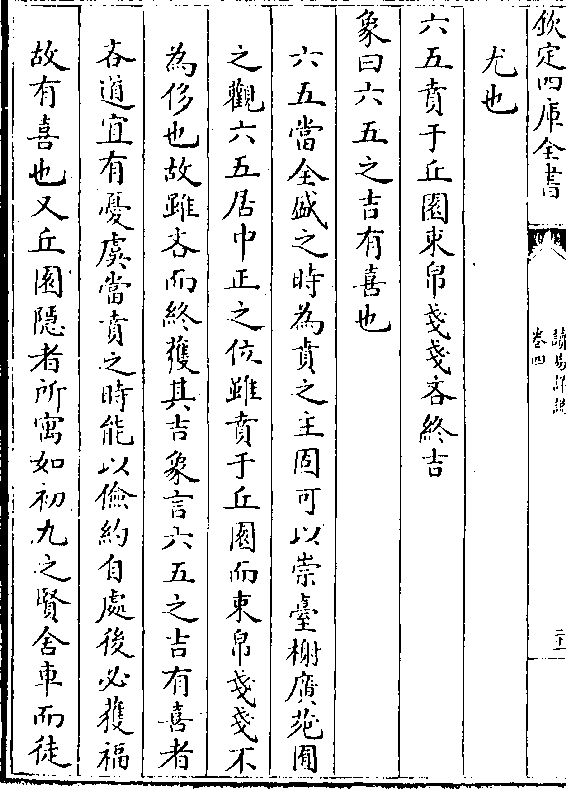 欽定四庫全書
讀易詳説
卷四
二十二
尤也
六五賁于丘園束帛戔戔吝終吉
象曰六五之吉有喜也
六五當全盛之時為賁之主固可以崇臺榭廣苑囿
之觀六五居中正之位雖賁于丘園而束帛戔戔不
為侈也故雖吝而終獲其吉象言六五之吉有喜者
吝道宜有憂虞當賁之時能以儉約自處後必獲福
故有喜也又丘園隠者所寓如初九之賢舍車而徒